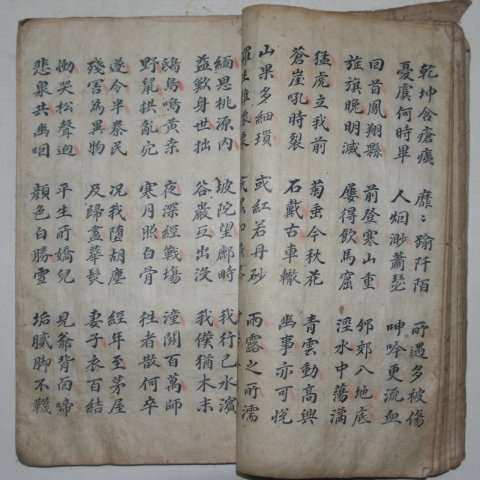 乾坤含瘡痍 靡〻踰阡陌 所遇多被傷
憂虞何時畢 人烟渺蕭瑟 呻吟更流血
回首鳳翔縣 前登寒山重 邠郊入地底
旌旗晚明滅 屢得飲馬窟 涇水中蕩潏
猛虎立我前 菊垂今秋花 青雲動高興
蒼崖吼時裂 石戴古車轍 幽事亦可悅
山果多細瑣 或紅若丹砂 雨露之所濡
緬思桃源內 坡陀望鄜時 我行已水濱
益歎身世拙 谷巖互出沒 我僕猶木末
鴟鳥鳴黃桑 夜深經戰場 潼關百萬師
野鼠拱亂穴 寒月照白骨 往者散何卒
遂令半秦民 況我墮胡塵 經年至茅屋
殘害為異物 及歸盡華髮 妻子衣百結
慟哭松聲迴 平生所嬌兒 見爺背面啼
悲泉共幽咽 顏色白勝雪 垢膩脚不韈